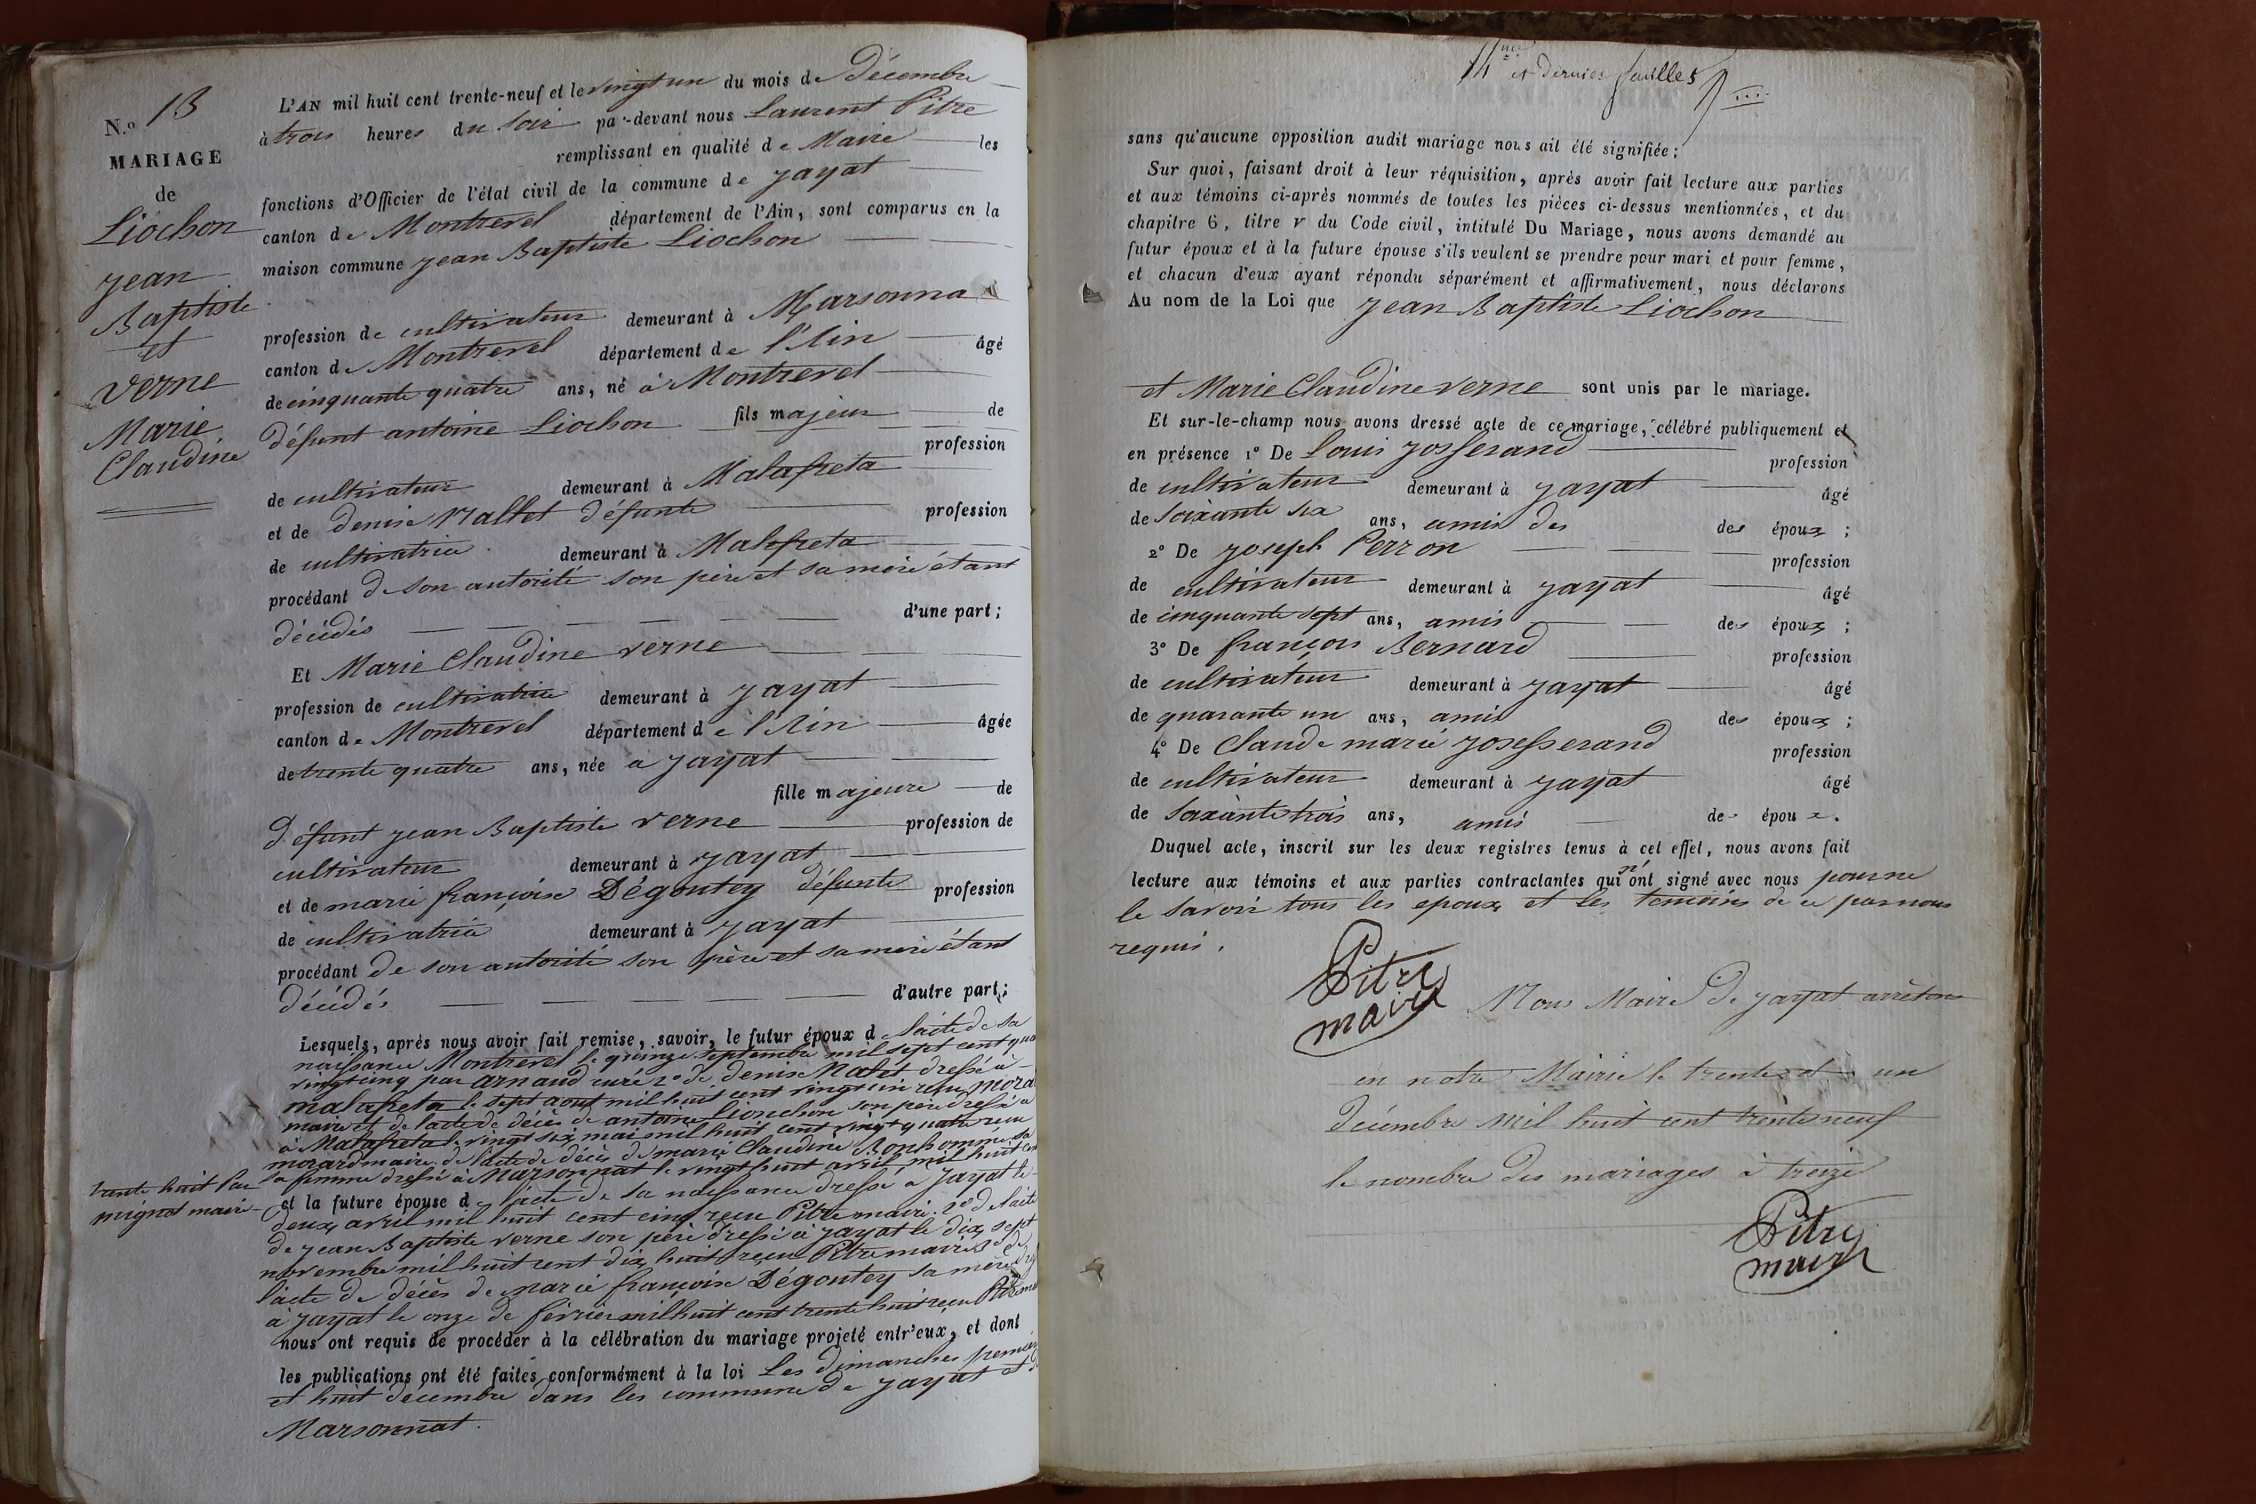 N.º 13
MARIAGE
de
Liochon
Jean
Baptiste
et
Verne
Marie
Claudine
L'AN mil huit cent trente-neuf et le vingt un du mois de Décembre
à trois heures du soir par-devant nous Laurent Pitre
remplissant en qualité de Maire les
fonctions d'Officier de l'état civil de la commune de Jayat
canton de Montrevel département de l'Ain, sont comparus en la
maison commune Jean Baptiste Liochon
profession de cultivateur demeurant à Marsonna
canton de Montrevel département de l'Ain âgé
de cinquante quatre ans, né à Montrevel
fils majeur de
défunt antoine Liochon profession
de cultivateur demeurant à Malafreta
et de denise Nallet défunte profession
de cultivatrice demeurant à Malafreta
procédant de son autorité son père et sa mère étant
décédés d'une part;
Et Marie Claudine Verne
profession de cultivatrice demeurant à Jayat
canton de Montrevel département de l'Ain âgée
de trente quatre ans, née à Jayat
fille majeure de
défunt jean Baptiste Verne profession de
cultivateur demeurant à Jayat
et de marie françoise Dégoutey défunte profession
de cultivatrice demeurant à Jayat
procédant de son autorité son père et sa mère étant
décédés d'autre part;
Lesquels, après nous avoir fait remise, savoir, le futur époux de l'acte de sa
naissance Montrevel le quinze septembre mil sept cent qua
vingt cinq par arnaud curé 2º de denise Nalet dressé à
malafreta le sept aout mil huit cent vingt un reçu mora
maire et de l'acte de décès de antoine Liouchon son père dressé a
à Malafreta le vingt six mai mil huit cent vingt quatre reçu
morard maire. de l'acte de décès de marie Claudine Bonhomme sa
1re femme dressé à Marsonnat le vingt huit avril mil huit cent
trente huit par
mignot maire
et la future épouse de l'acte de sa naissance dressé à Jayat le
deux avril mil huit cent cinq reçu Pitre maire. 2º de l'acte
de jean Baptiste Verne son père dressé à jayat le dix sept
novembre mil huit cent dix huit reçu Pitre maire 3º de
l'acte de décès de marie françoise Dégoutey sa mère
à jayat le onze de février mil huit cent trente huit reçu Pitre
nous ont requis de procéder à la célébration du mariage projeté entr'eux, et dont
les publications ont été faites conformément à la loi Les dimanches premier
et huit decembre dans les commune de Jayat et
Marsonnat.
et dernier feuilles
sans qu'aucune opposition audit mariage nous ait été signifiée;
Sur quoi, faisant droit à leur réquisition, après avoir fait lecture aux parties
et aux témoins ci-après nommés de toutes les pièces ci-dessus mentionnées, et du
chapitre 6, titre V du Code civil, intitulé Du Mariage, nous avons demandé au
futur époux et à la future épouse s'ils veulent se prendre pour mari et pour femme,
et chacun d'eux ayant répondu séparément et affirmativement, nous déclarons
Au nom de la Loi que Jean Baptiste Liochon
et Marie Claudine Verne sont unis par le mariage.
Et sur-le-champ nous avons dressé acte de ce mariage, célébré publiquement et
en présence 1º De Louis Josserand profession
de cultivateur demeurant à Jayat âgé
de soixante six ans, amis des des époux;
2º De Joseph Perron profession
de cultivateur demeurant à Jayat âgé
de cinquante sept ans, amis des époux;
3º De françois Bernard profession
de cultivateur demeurant à Jayat âgé
de quarante un ans, amis des époux;
4º De Claude marie Josesserand profession
de cultivateur demeurant à Jayat âgé
de soixante trois ans, amis des époux.
Duquel acte, inscrit sur les deux registres tenus à cet effet, nous avons fait
lecture aux témoins et aux parties contractantes qui n'ont signé avec nous pour ne
le savoir tous les epoux et les temoins de ce par nous
requis.
Pitre
maire
Nous Maire de jayat arrêtons
en notre Mairie le trente et un
décembre mil huit cent trente neuf
le nombre des mariages à treize
Pitre
maire